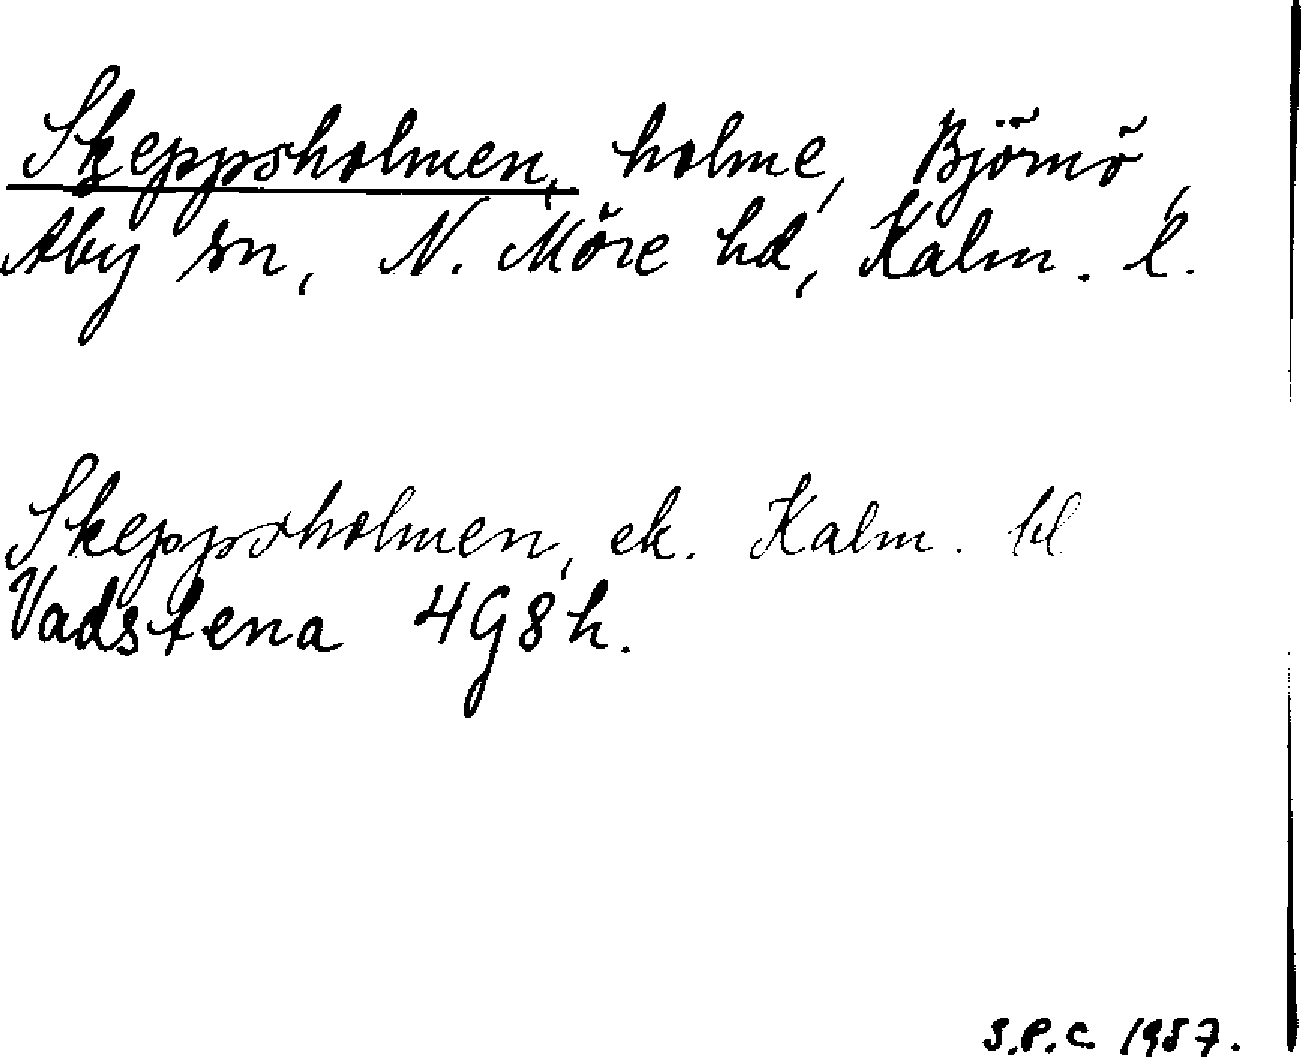 Skeppsholmen, holme, Björnö,
Åby sn, N. Möre hd, Kalm. l.
Skeppsholmen, ek. Kalm. bl
Vadstena 4G8h.
S.P.C. 1957.